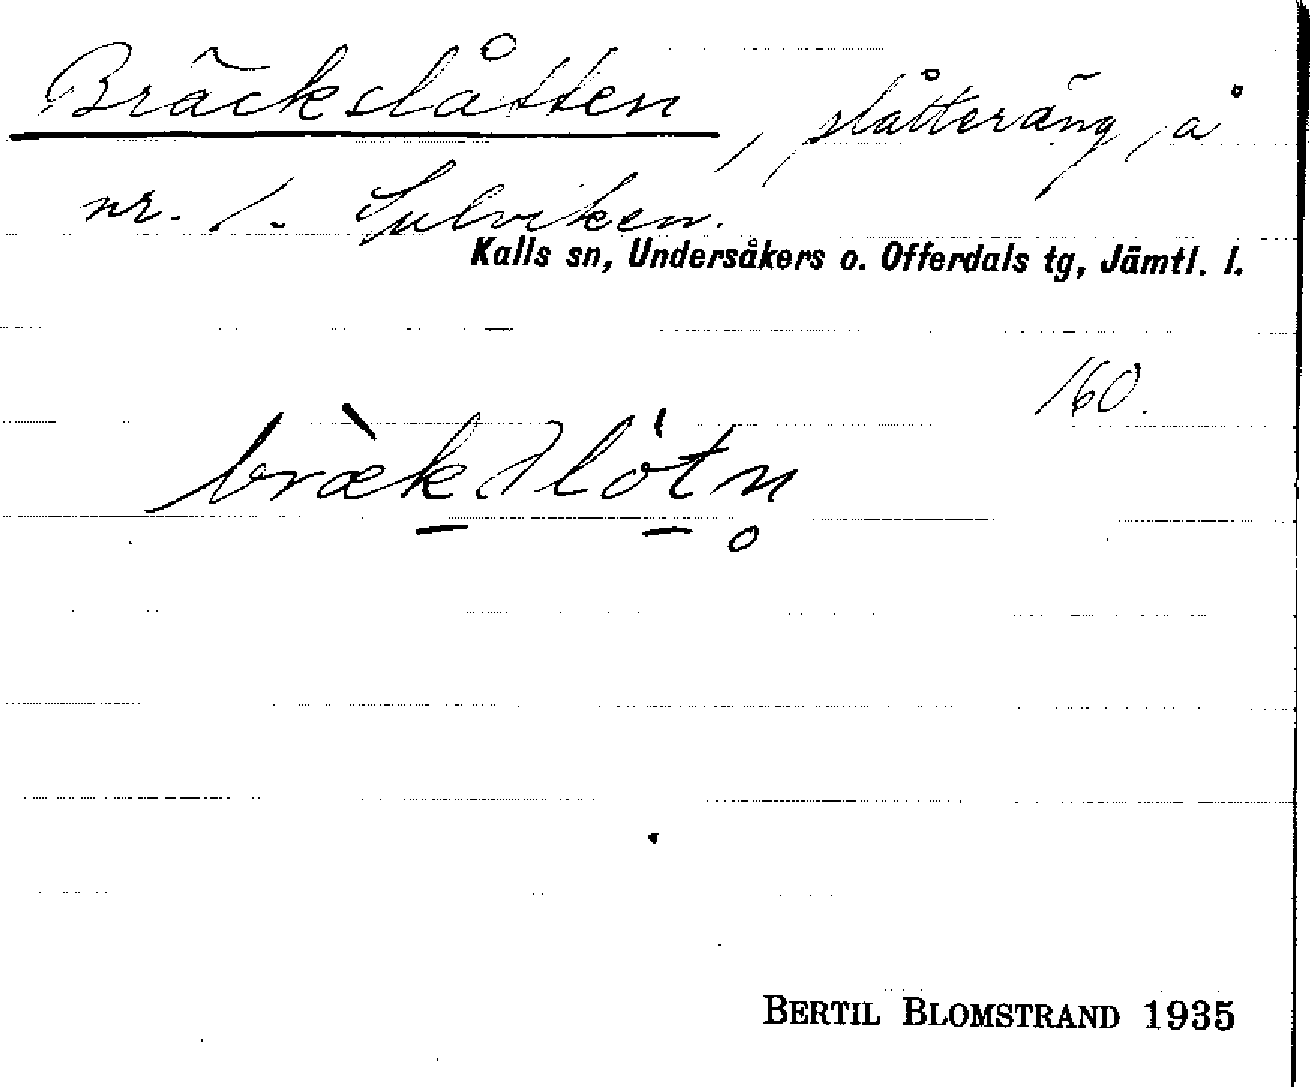 Bräckslåtten, slåtteräng, å
nr. 1. Sulviken.
Kalls sn, Undersåkers o. Offerdals tg, Jämtl. l.
160.
BERTIL BLOMSTRAND 1935